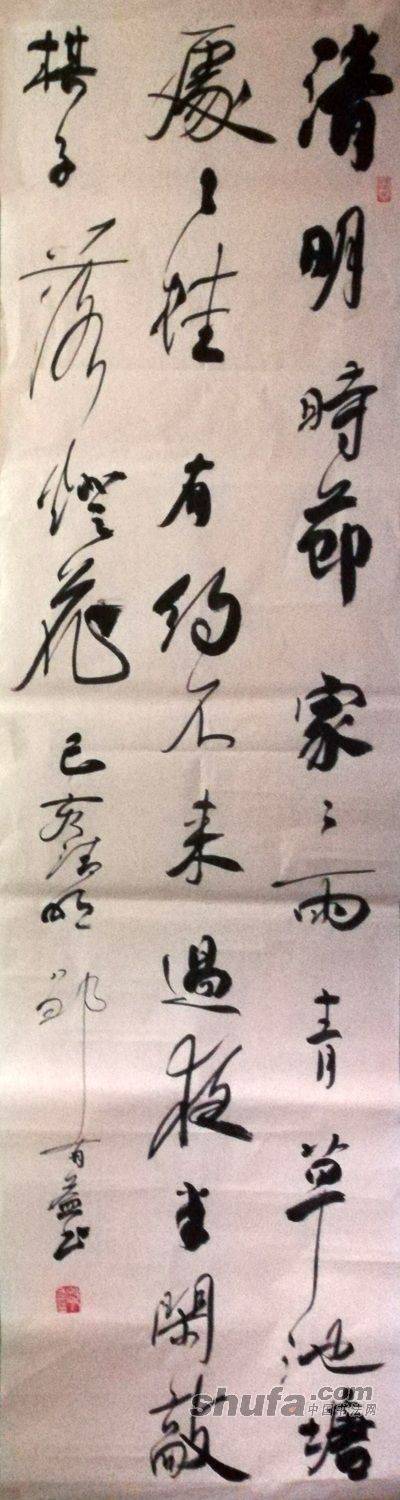 清明時節家〻雨青草池塘
處〻蛙有約不来過夜半閑敲
棋子落燈花己亥清明
有益书
shufa.com
中国书法网